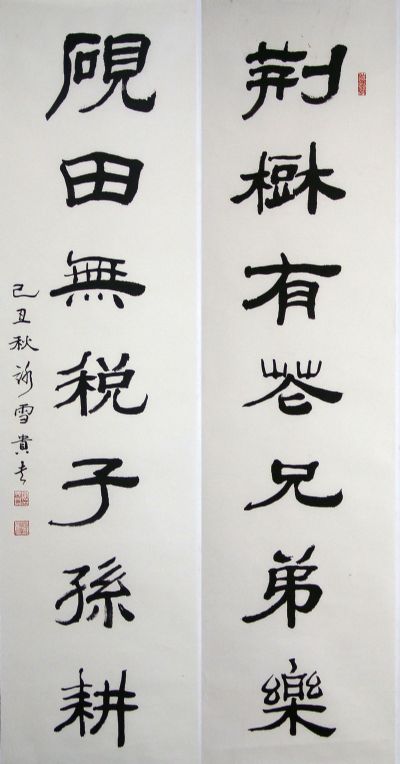 荆樹有芲兄弟樂
硯田無税子孫耕
己丑秋詠雪貴書